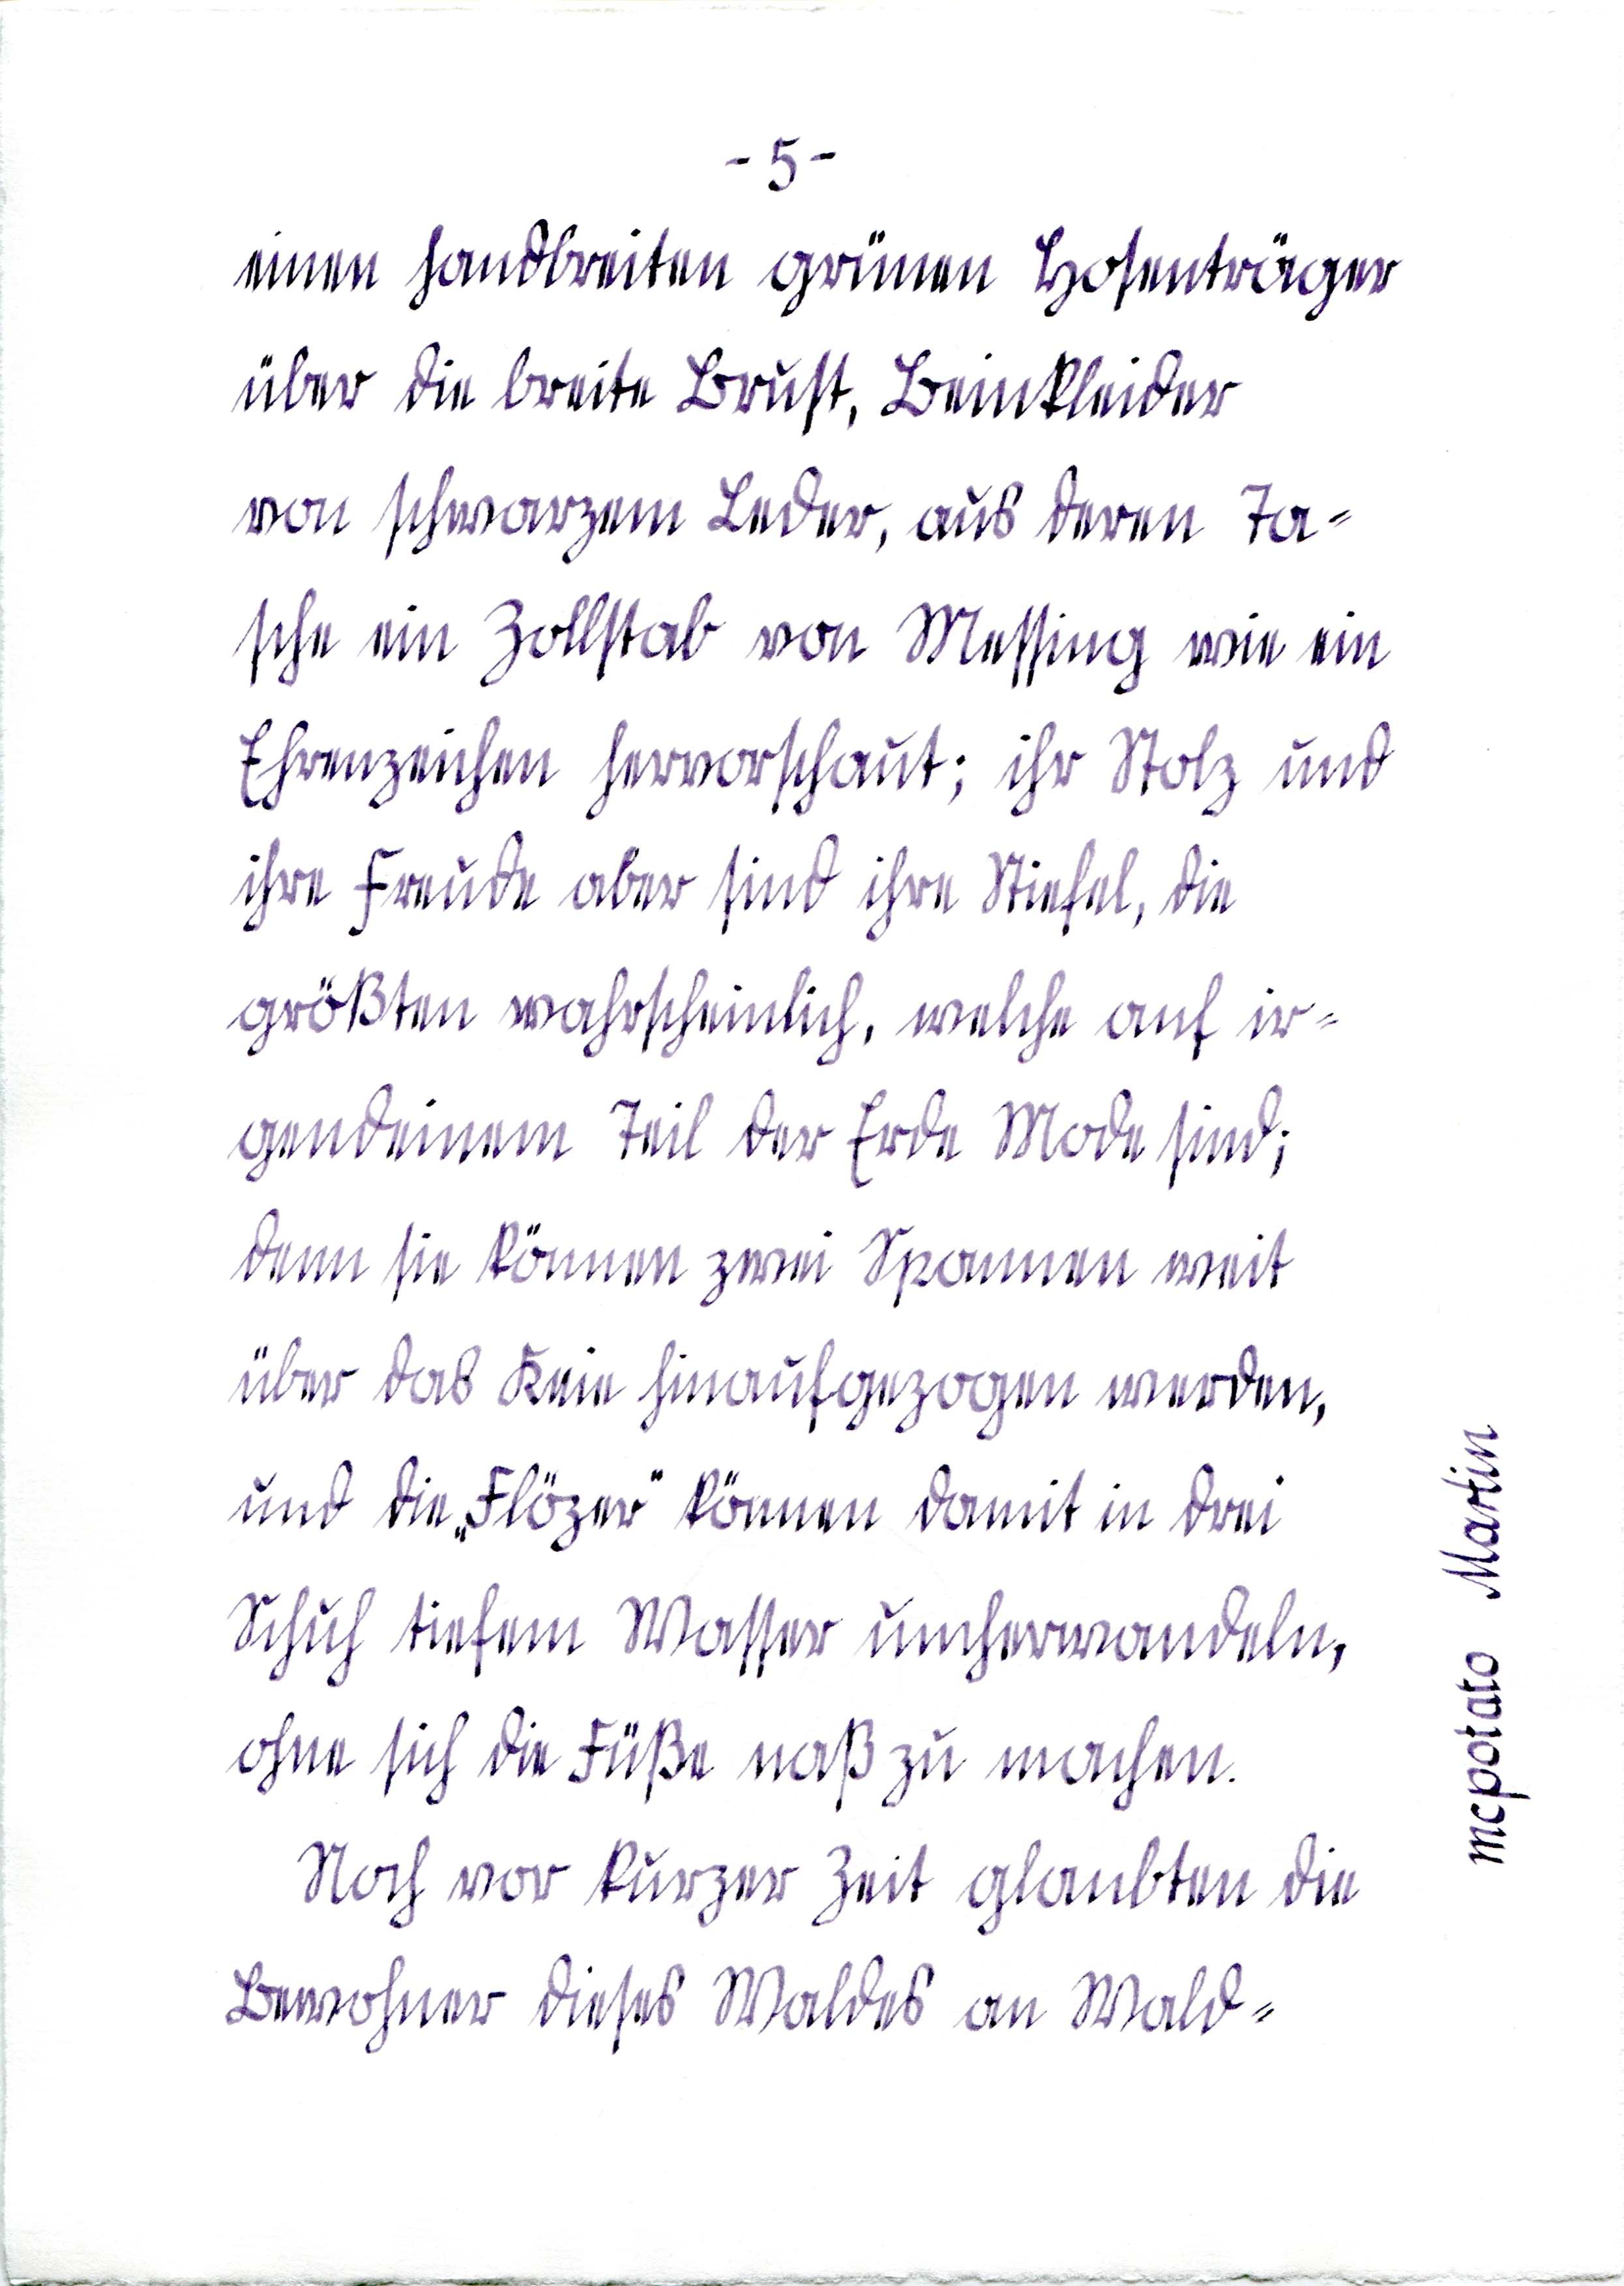 - 5 -
einen handbreiten grünen Hosenträger
über die breite Brust, Beinkleider
von schwarzem Leder, aus deren Ta=
sche ein Zollstab von Messing wie ein
Ehrenzeichen hervorschaut; ihr Stolz und
ihre Freude aber sind ihre Stiefel, die
größten wahrscheinlich, welche auf ir=
gendeinem Teil der Erde Mode sind;
denn sie können zwei Spannen weit
über das Knie hinaufgezogen werden,
und die „Flözer“ können damit in drei
Schuh tiefem Wasser umherwandeln,
ohne sich die Füße naß zu machen.
Noch vor kurzer Zeit glaubten die
Bewohner dieses Waldes an Wald=
mcpotato Martin